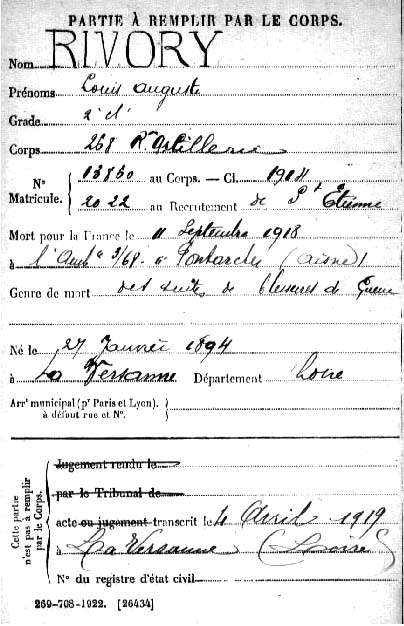 PARTIE À REMPLIR PAR LE CORPS.
Nom RIVORY
Prénoms Louis Auguste
Grade 2e cl
Corps 268 R. Artillerie
N° Matricule. { 13850 au Corps. — Cl. 1914
2022 au Recrutement de St Etienne
Mort pour la France le 11 Septembre 1918
à l'Amb ce 3/68 à Pontarcher (Aisne)
Genre de mort des suites de blessures de Guerre
Né le 27 Janvier 1894
à La Versanne Département Loire
Arr' municipal (p' Paris et Lyon), à défaut rue et N°. {
Cette partie n'est pas à remplir par le Corps.
Jugement rendu le
par le Tribunal de
acte ou jugement transcrit le 4 Avril 1919
à La Versanne (Loire)
N° du registre d'état civil
269-708-1922. [26434]